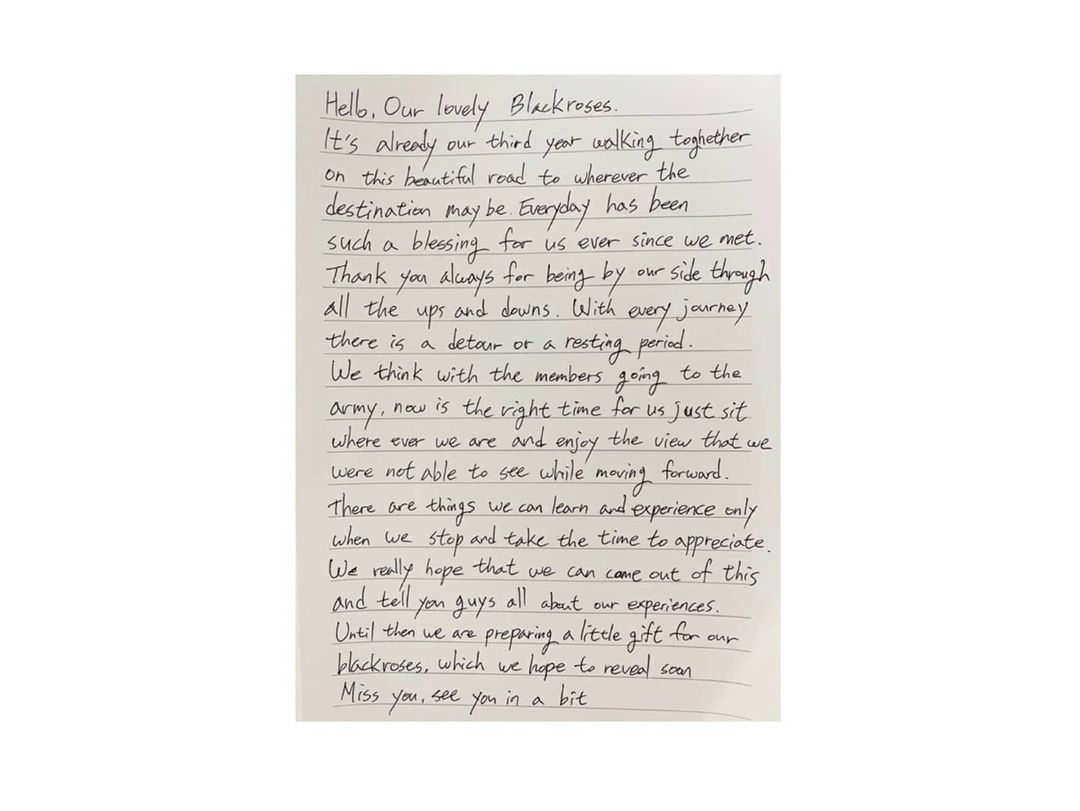 Hello, Our lovely Blackroses.
It's already our third year walking toghether
on this beautiful road to wherever the
destination may be. Everyday has been
such a blessing for us ever since we met.
Thank you always for being by our side through
all the ups and downs. With every journey
there is a detour or a resting period.
We think with the members going to the
army, now is the right time for us just sit
where ever we are and enjoy the view that we
were not able to see while moving forward.
There are things we can learn and experience only
when we stop and take the time to appreciate.
We really hope that we can come out of this
and tell you guys all about our experiences.
Until then we are preparing a little gift for our
blackroses, which we hope to reveal soon
Miss you, see you in a bit